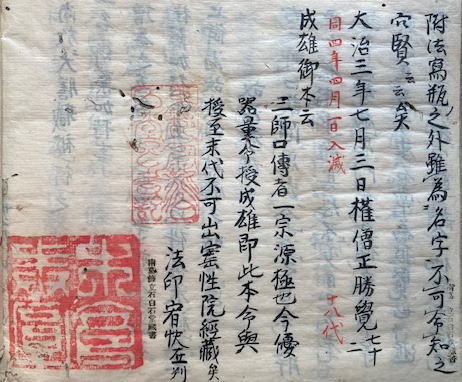 附法寫瓶之外雖為名字不可令知之
穴賢云云矣
大治三年七月三日權僧正勝覺七十二
同四年四月一日入滅 十八代
成雄御本云
三師口傳者一宗源極也今優
器量令授成雄即此本令與
授至末代不可出寳性院經藏矣
法印宥快在判